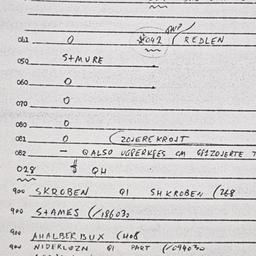 041 0 *042 / REDLEN
050 S+MURE
060 0
070 0
080 0
081 0 (ZOJEREKROJT
082 — QALSO UGPERKGES CM
028 QH
900 SKROBEN QI SHKROBEN (768
900 S+AMES (/186030
900 AHALBERBUX (HOB
900 NIDERLOZN QI PART (/094030